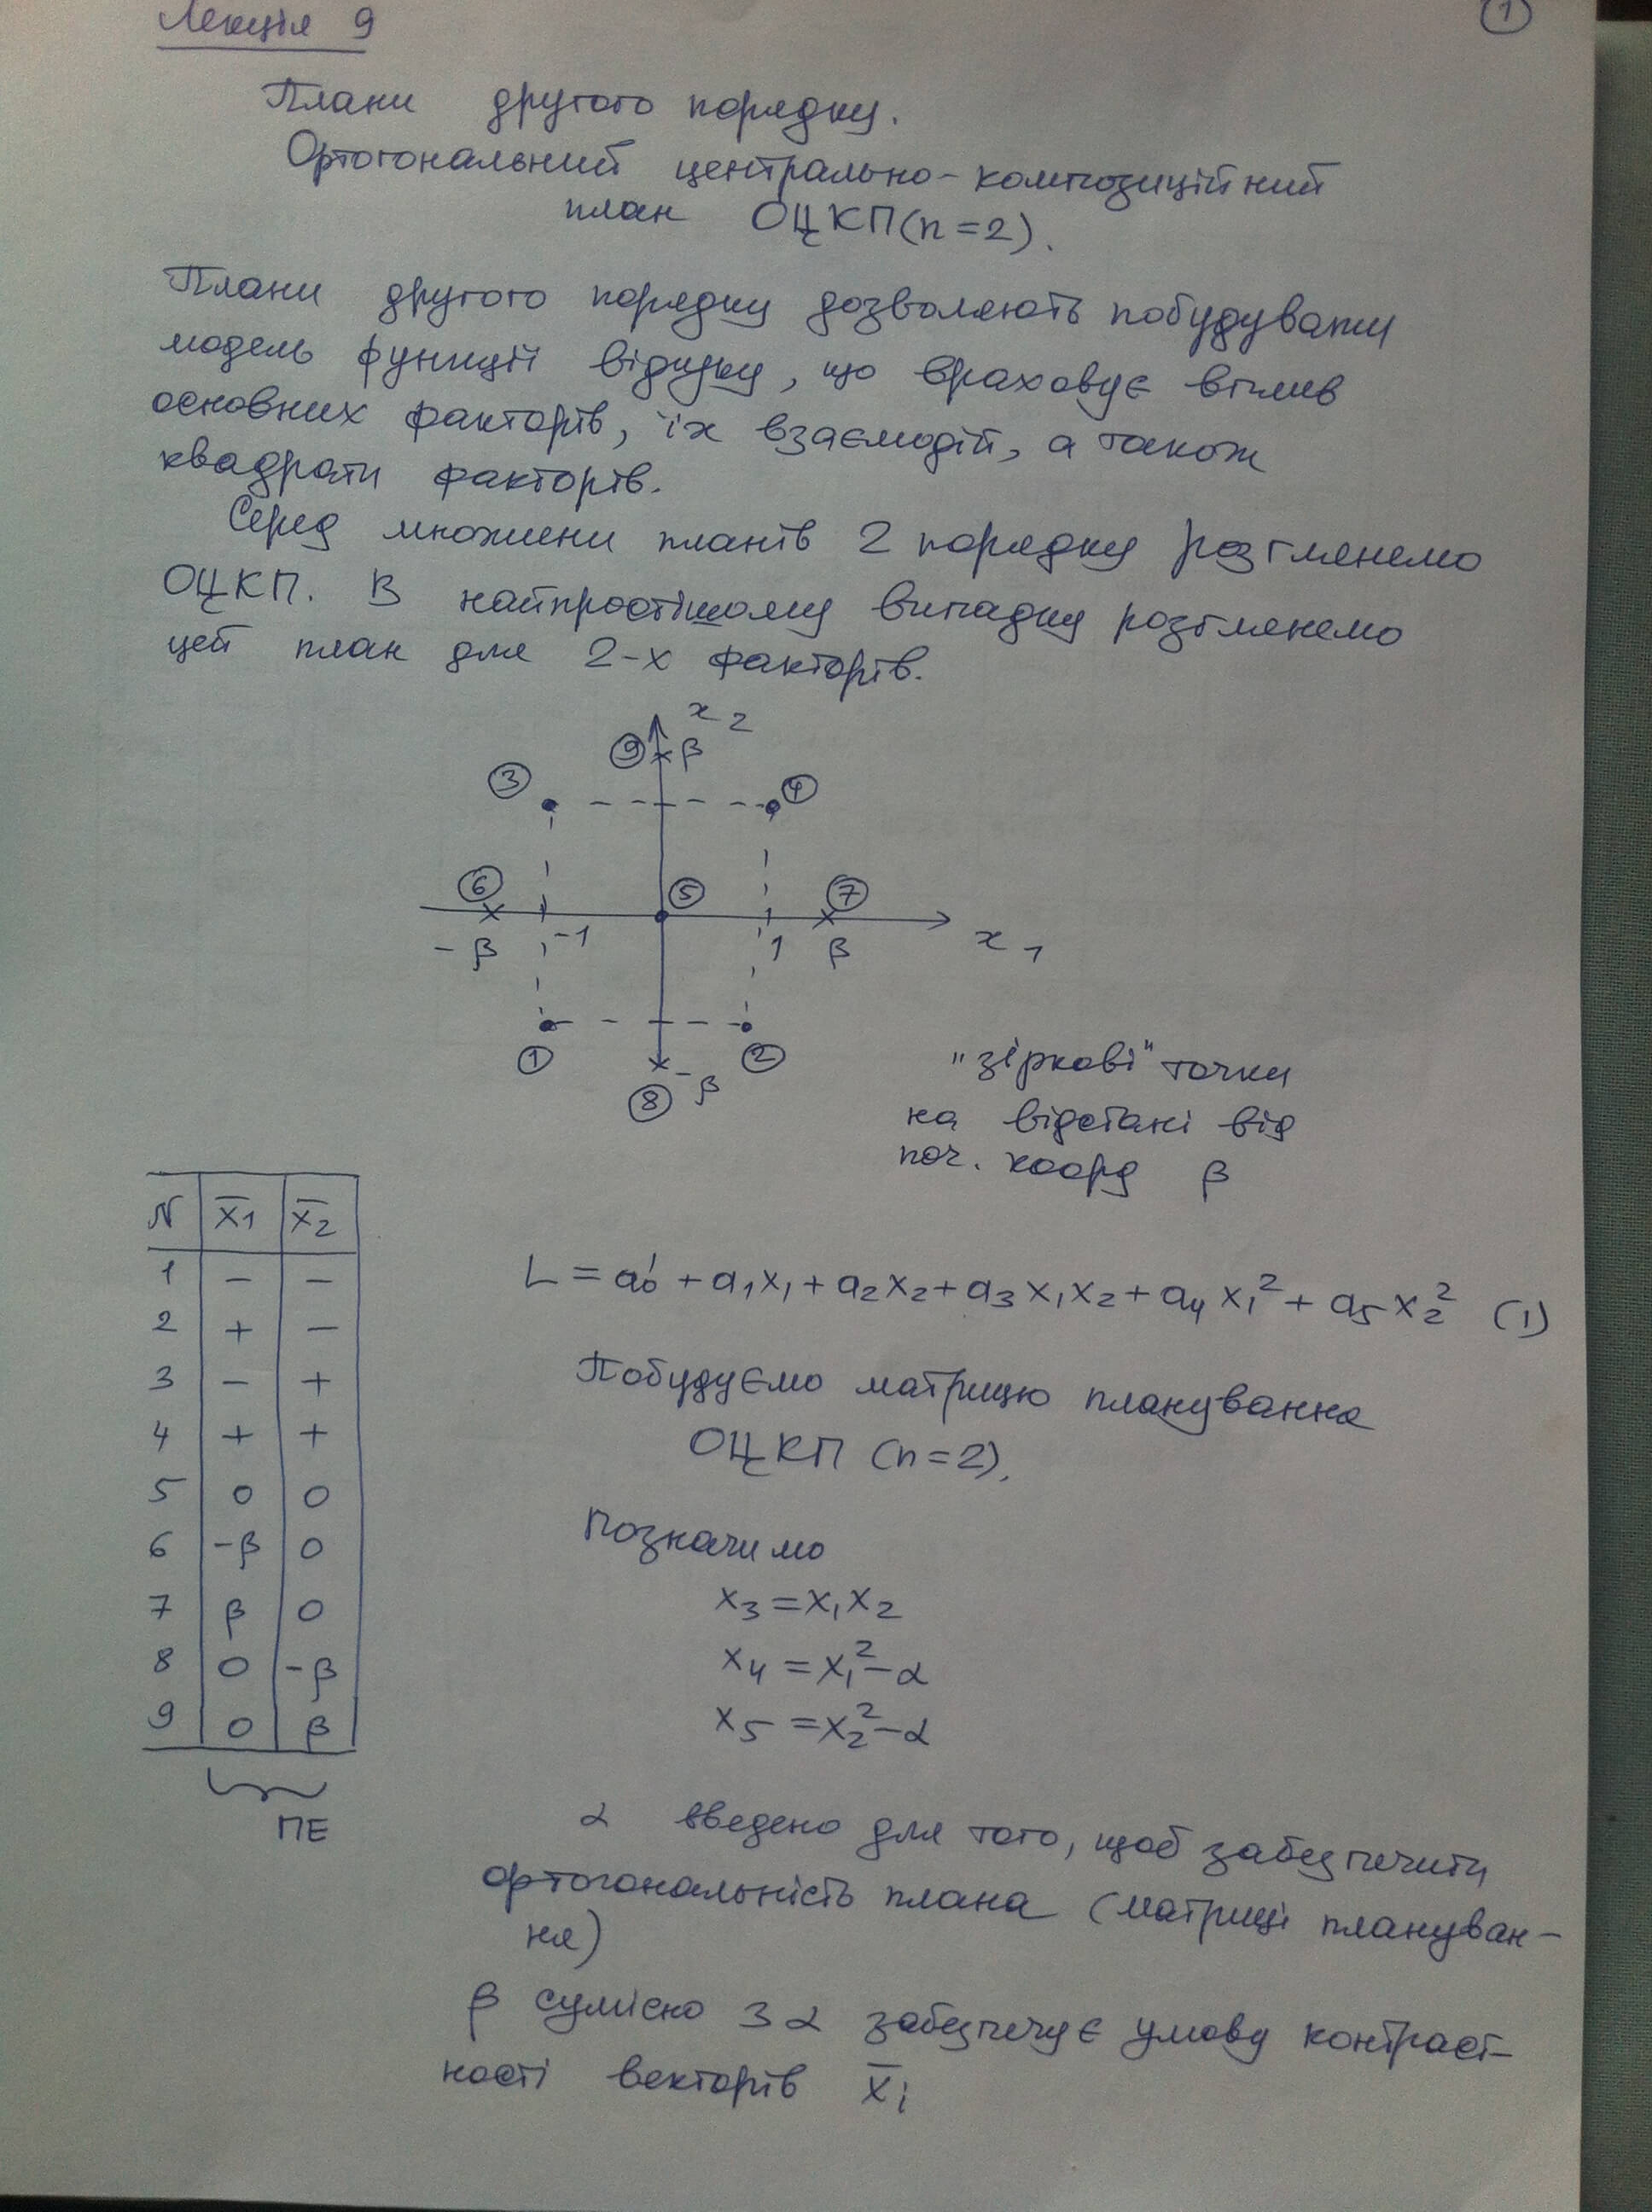 Лекція 9
1
Плани другого порядку.
Ортогональний центрально-композиційний
план ОЦКП(n=2).
Плани другого порядку дозволяють побудувати
модель функції відгуку, що враховує вплив
основних факторів, їх взаємодій, а також
квадрати факторів.
Серед множини планів 2 порядку розглянемо
ОЦКП. В найпростішому випадку розглянемо
цей план для 2-х факторів.
x2
9 β
3 4
6 5 7
-β -1 1 β x1
1 2
8 -β
"зіркові" точки
на відстані від
поч. коорд β
N x̄1 x̄2
1 − −
2 + −
3 − +
4 + +
5 0 0
6 -β 0
7 β 0
8 0 -β
9 0 β
ПЕ
L = a₀' + a₁x₁ + a₂x₂ + a₃x₁x₂ + a₄x₁² + a₅x₂² (1)
Побудуємо матрицю планування
ОЦКП (n=2).
Позначимо
x₃ = x₁x₂
x₄ = x₁² − α
x₅ = x₂² − α
α введено для того, щоб забезпечити
ортогональність плана (матриці плануван-
ня)
β сумісно з α забезпечує умову контраст-
ності векторів x̄i